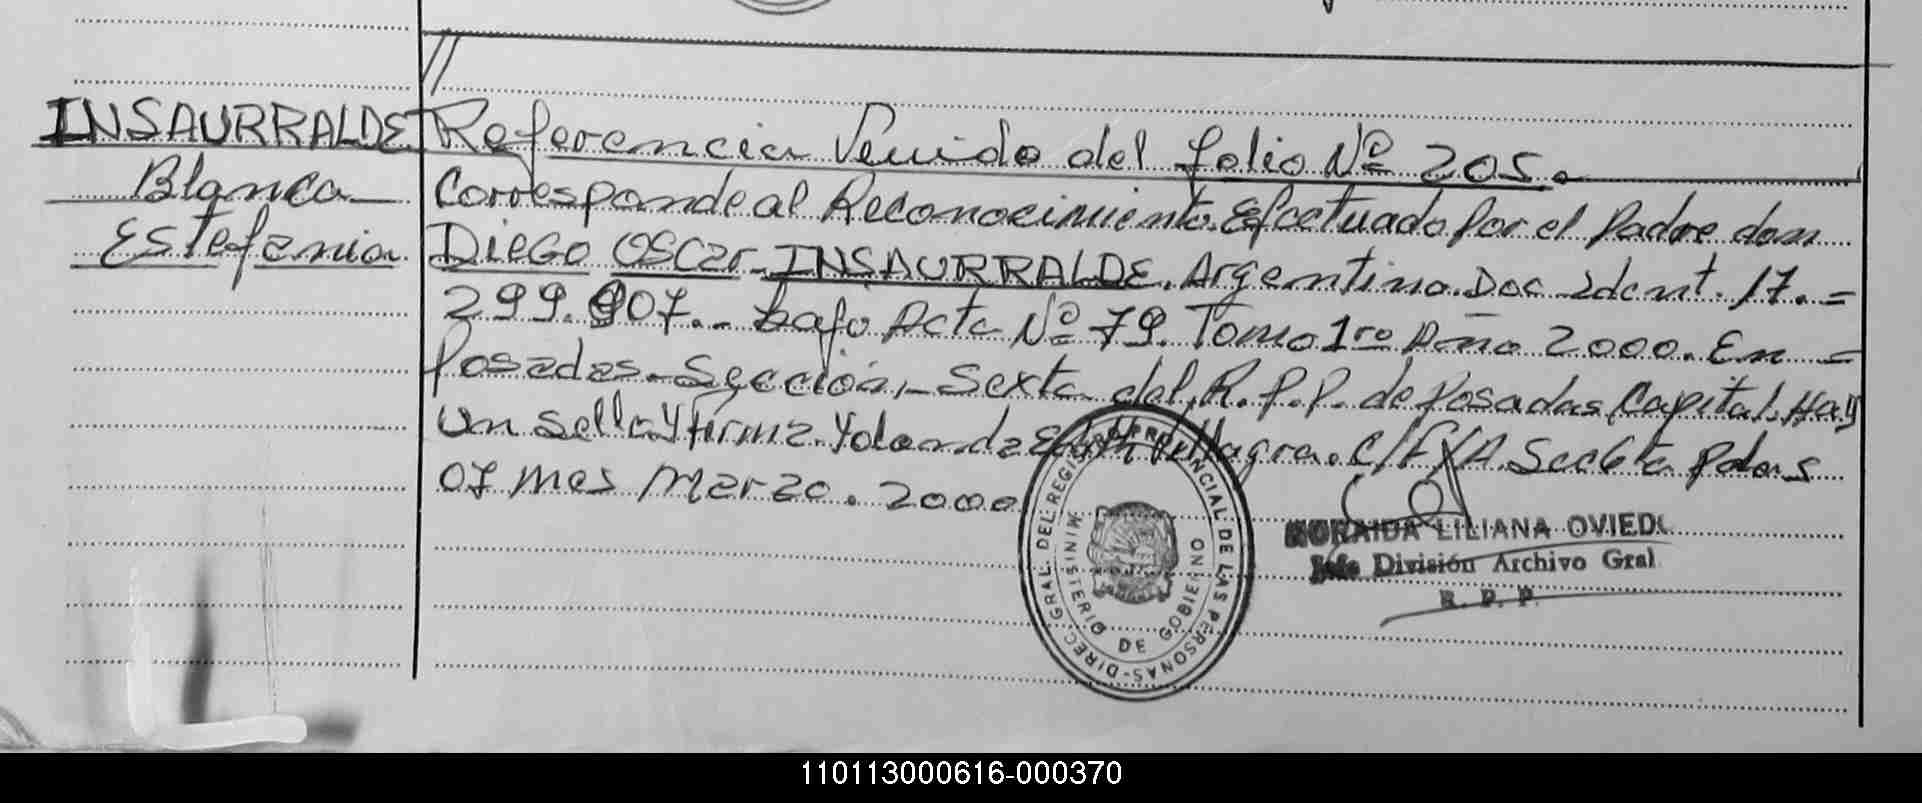 //
INSAURRALDE
Blanca
Estefania
Referencia Venido del folio Nº 205.
Corresponde al Reconocimiento Efectuado Por el Padre don
DIEGO OSCAR INSAURRALDE. Argentino. Doc Ident. 17.=
299.907.- bajo Acta Nº 79. Tomo 1ro Año 2000. En =
Posadas. Sección, Sexta del R.P.P. de Posadas Capital. Hay
Un Sello y firma. Yolanda Edith Villagra. C/F/A. Secc 6ta Pdas
07 mes Marzo. 2000
DIREC. GRAL. DEL REGIS. PROVINCIAL DE LAS PERSONAS-
MINISTERIO DE GOBIERNO
LILIANA OVIEDO
Jefe División Archivo Gral
R. P. P.
110113000616-000370